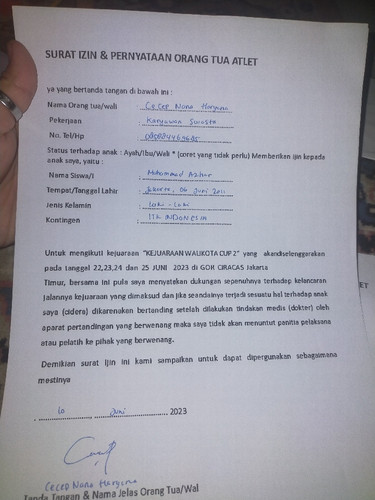 SURAT IZIN & PERNYATAAN ORANG TUA ATLET
ya yang bertanda tangan di bawah ini :
Nama Orang tua/wali : Cecep Nana Haryana
Pekerjaan : Karyawan Swasta
No. Tel/Hp :
Status terhadap anak : Ayah/Ibu/Wali * (coret yang tidak perlu) Memberikan ijin kepada
anak saya, yaitu :
Nama Siswa/i : Mohammad Azhar
Tempat/Tanggal Lahir : Jakarta, 06 Juni 2011
Jenis Kelamin : Laki - Laki
Kontingen : INDONESIA
Untuk mengikuti kejuaraan "KEJUARAAN WALIKOTA CUP 2" yang akandiselenggarakan
pada tanggal 22,23,24 dan 25 JUNI 2023 di GOR CIRACAS Jakarta
Timur, bersama ini pula saya menyatakan dukungan sepenuhnya terhadap kelancaran
jalannya kejuaraan yang dimaksud dan jika seandainya terjadi sesuatu hal terhadap anak
saya (cidera) dikarenakan bertanding setelah dilakukan tindakan medis (dokter) oleh
aparat pertandingan yang berwenang maka saya tidak akan menuntut panitia pelaksana
atau pelatih ke pihak yang berwenang.
Demikian surat ijin ini kami sampaikan untuk dapat dipergunakan sebagaimana
mestinya
10 Juni 2023
Cecep Nana Haryana
Tanda Tangan & Nama Jelas Orang Tua/Wal
ET